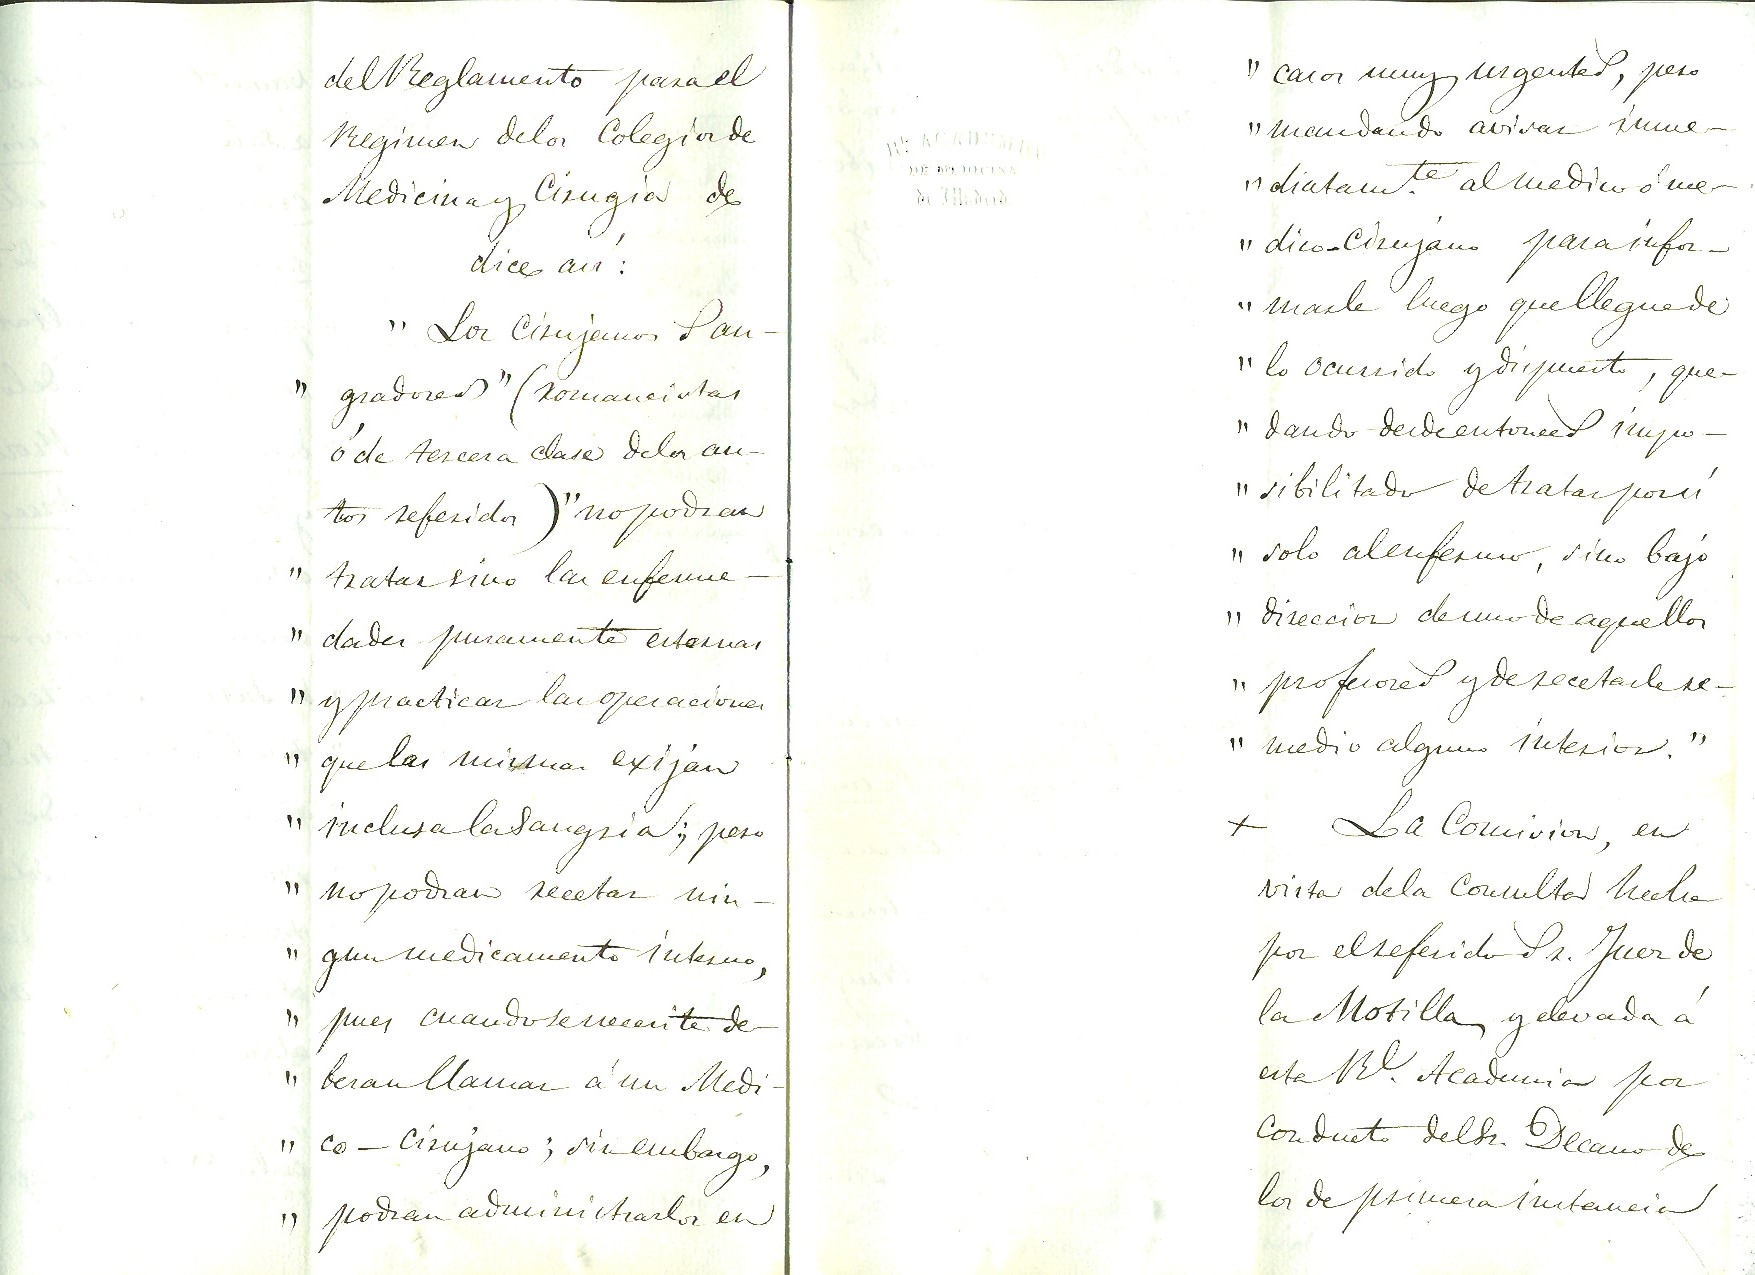 del Reglamento para el
Regimen de los Colegios de
Medicina y Cirugia de
dice asi:
" Los Cirujanos San-
" gradores" (romancistas
ó de tercera clase de los au-
tos referidos) "no podran
" tratar sino las enferme-
" dades puramente esternas
" y practicar las operaciones
" que las mismas exijan
" inclusa la Sangria; pero
" no podran recetar nin-
" gun medicamento interno,
" pues cuando se necesite de-
" beran llamar á un Medi-
" co-Cirujano; sin embargo,
" podran administrarlos en
" casos muy urgentes, pero
" mandando avisar inme-
" diatam.te al medico ó me-
" dico-Cirujano para infor-
" marle luego que llegue de
" lo ocurrido y dispuesto, que-
" dando desde entonces impo-
" sibilitado de tratar por si
" solo al enfermo, sino bajo
" direccion de uno de aquellos
" profesores y de recetarle re-
" medio alguno interior."
+ La Comision, en
vista de la Consulta hecha
por el referido Sr. Juez de
la Motilla, y elevada á
esta Rl. Academia por
conducto del Sr. Decano de
los de primera instancia
RL ACADEMIA
DE MEDICINA
de Madrid